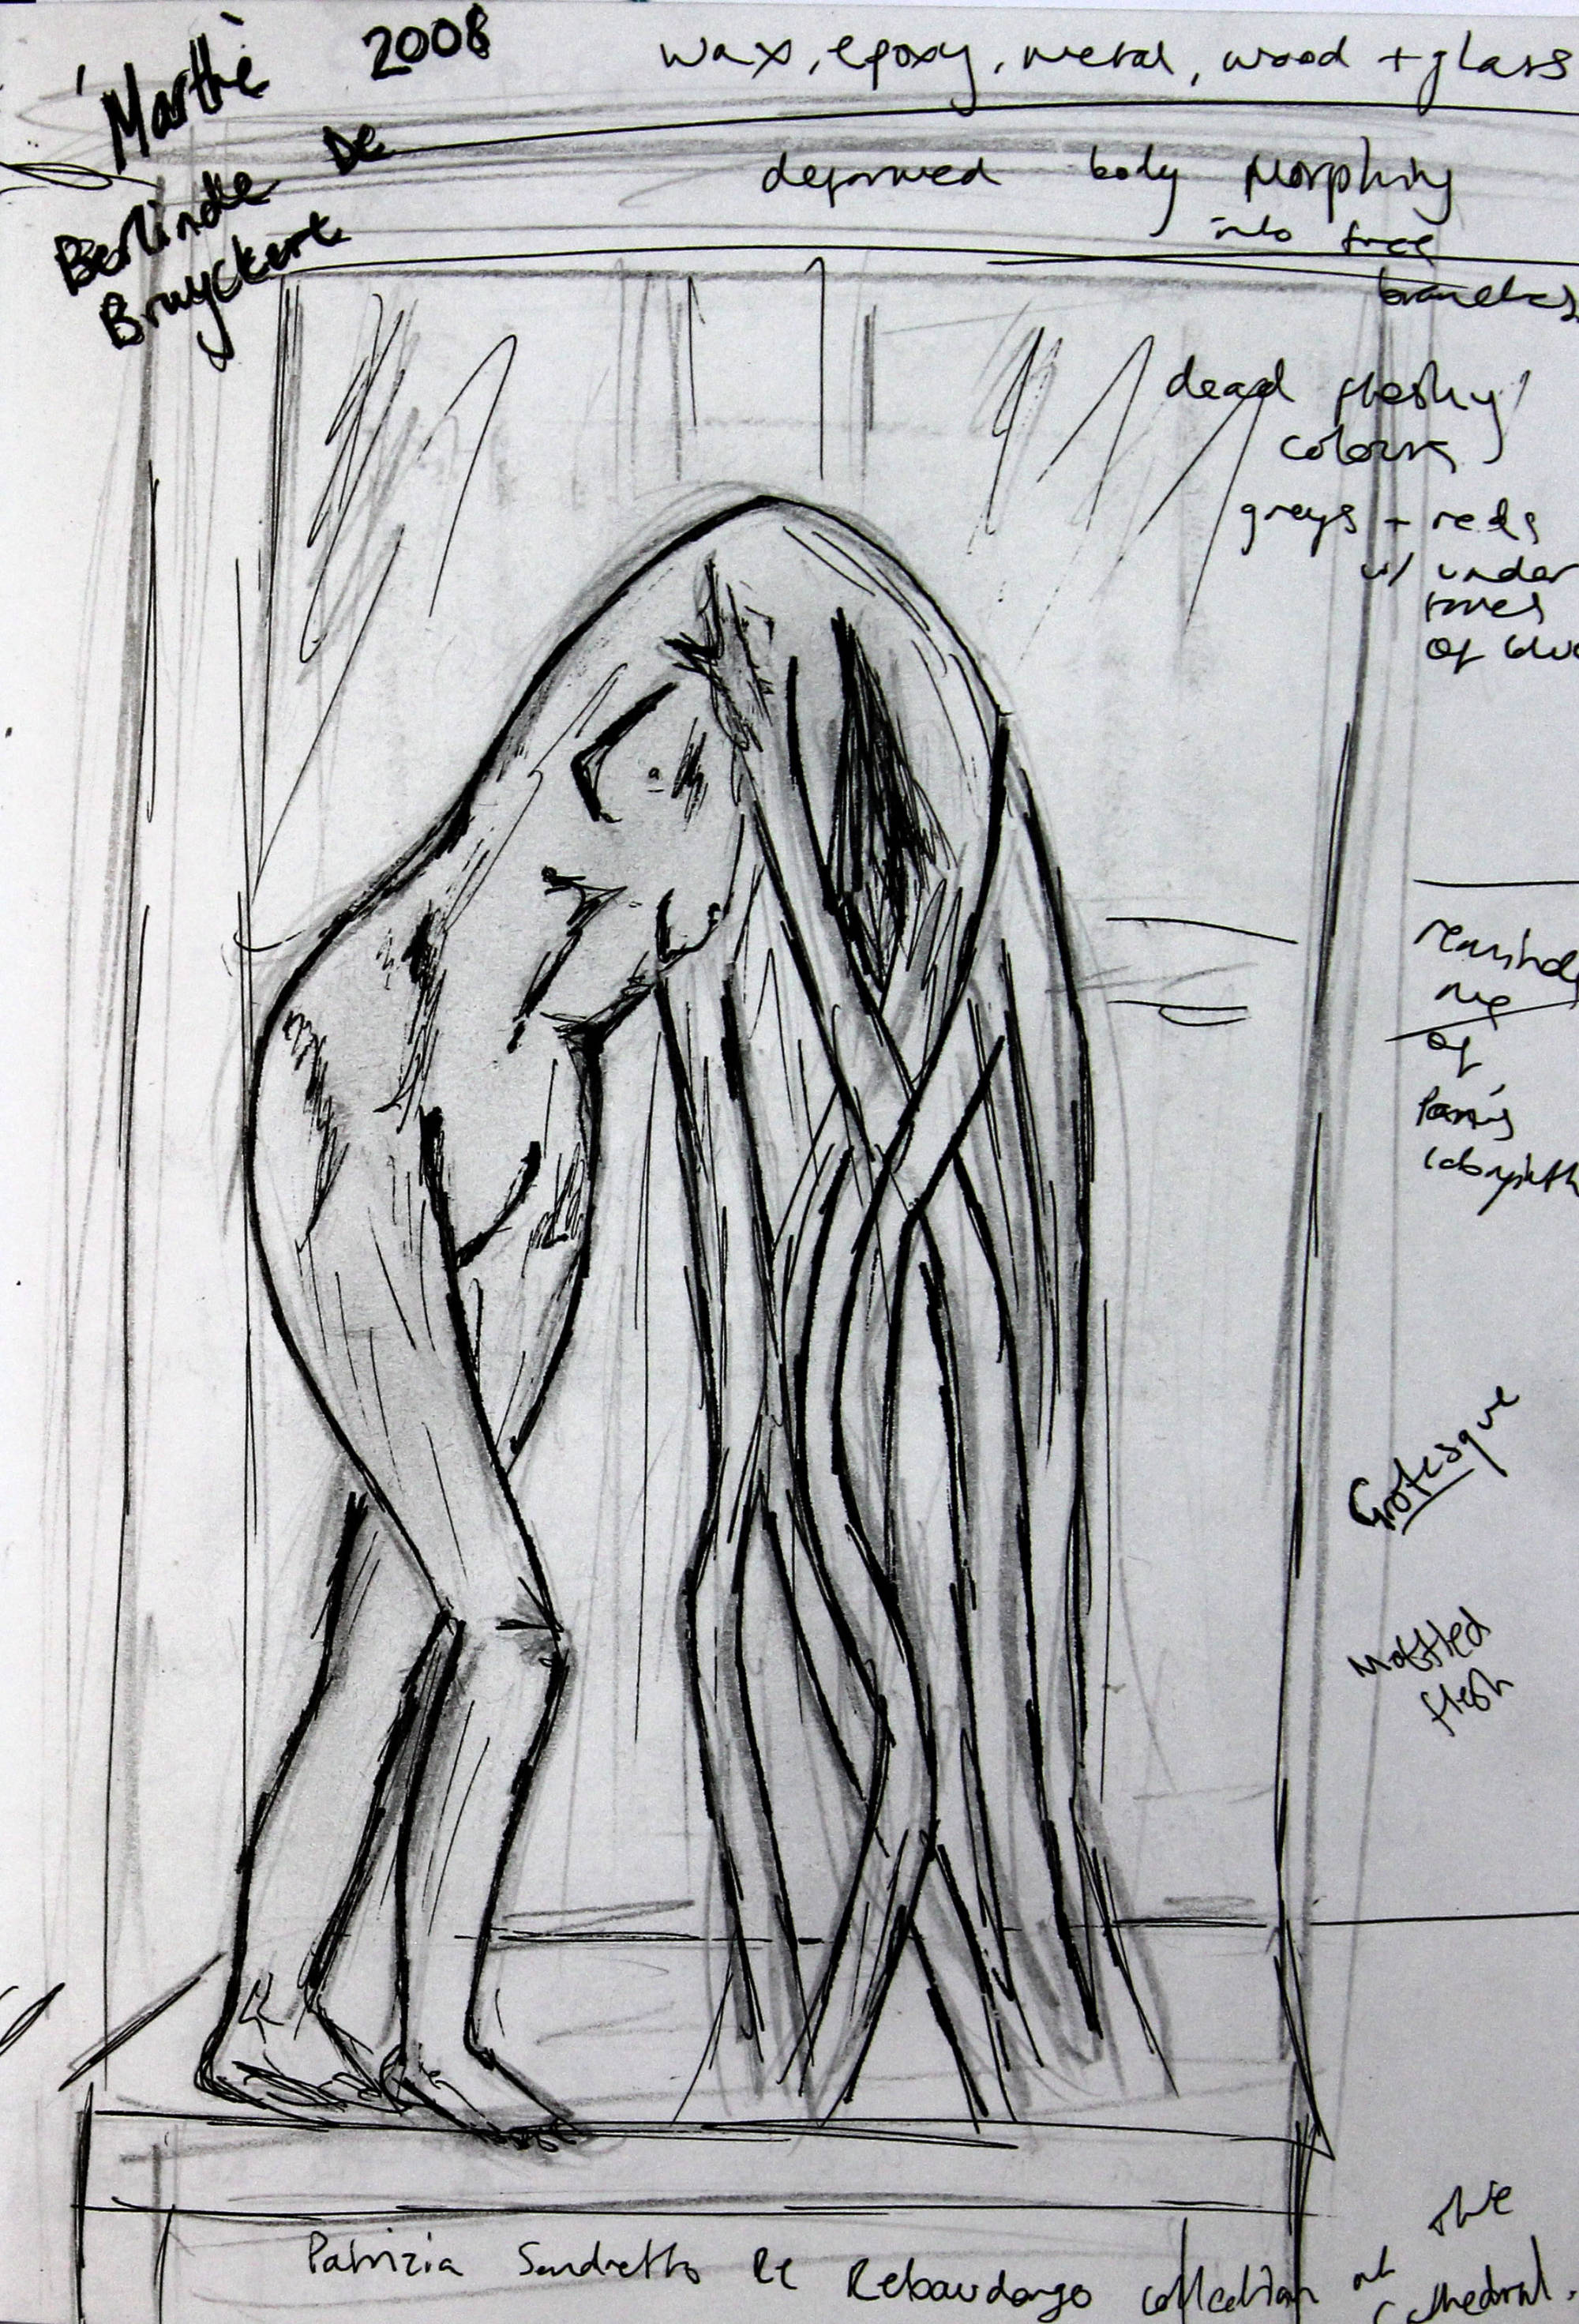 'Marthe'
2008
wax, epoxy, metal, wood + glass
Berlinde De
Bruyckere
deformed body morphing
into tree
branches
dead fleshy
colours
greys + reds
w/ under
tones
of blue
reminds
me
of
Pan's
labyrinth
Grotesque
Mottled
flesh
Patrizia Sandretto Re Rebaudengo collection at the
Cathedral.